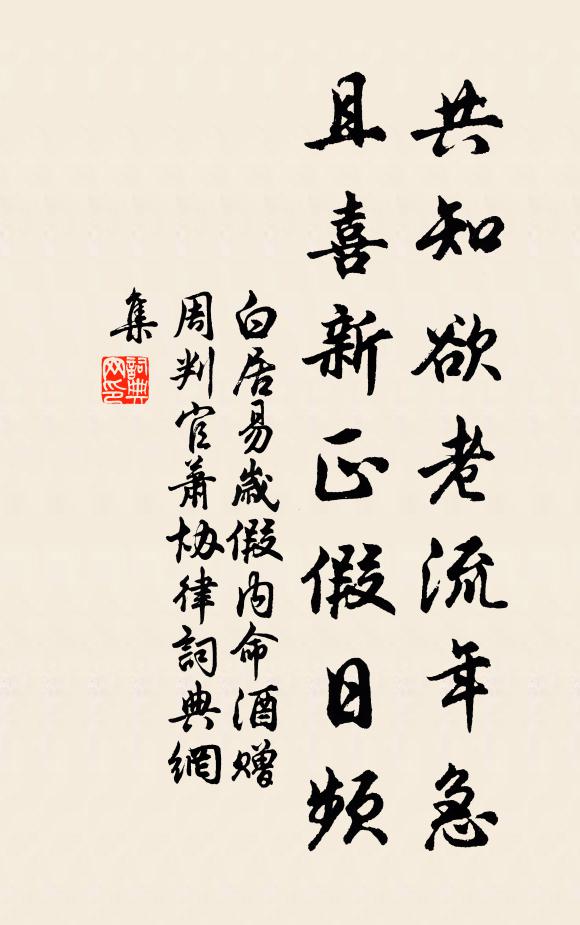 共知欲老流年急
且喜新正假日頻
白居易歲假内命酒贈
周判官蕭協律詞典網
集
詞典
网印